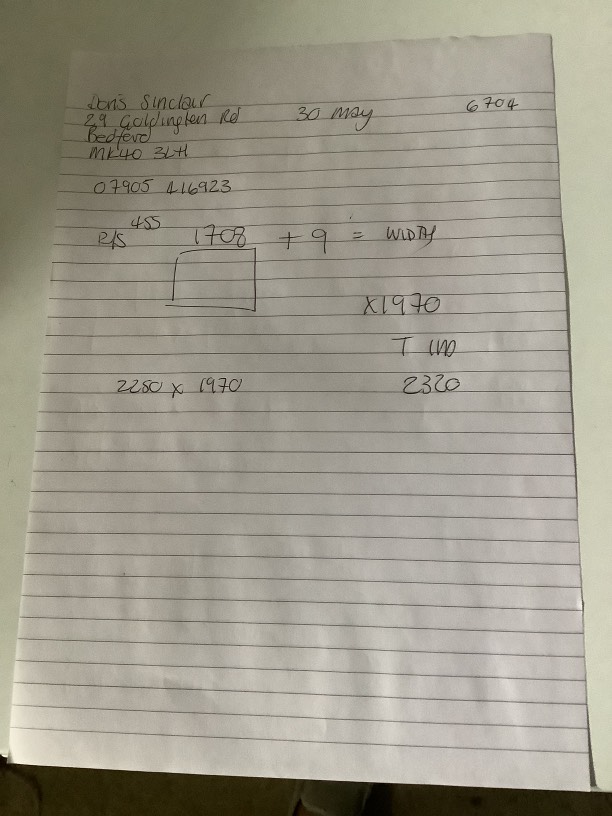 Doris Sinclair
29 Goldington Rd 30 May 6704
Bedford
MK40 3LH
07905 416923
R/S 455 1708 + 9 = WIDTH
X1970
T
2280 x 1970 2320